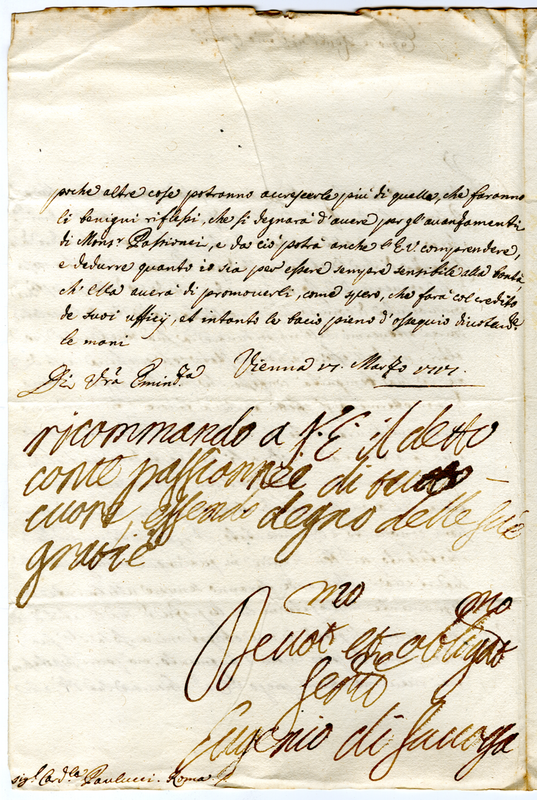 poche altre cose potranno accrescerle più di quelle, che faranno
li benigni riflessi, che si degnarà d'avere per gl'avanzamenti
di Mons.r Passionei, e da ciò potrà anche l'E.V. comprendere,
e dedurre quanto io sia per essere sempre sensibile alla bontà
ch'ella averà di promoverli, come spero, che farà col credito
de suoi uffizij, et intanto le bacio pieno d'ossequio
le mani
Di Vrã Emin.za Vienna 17. Marzo 1717.
ricommando a V. E. il detto
conte passionnei di
cuore, essendo degno delle sue
gratie
Devot.mo et obligat.mo
ser.re
Eugenio di Savoya
Sig.r Card.le Paulucci. Roma